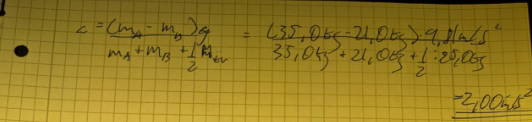 a = (m_A - m_B)g / (m_A + m_B + 1/2 M) = (35,0kg - 21,0kg) · 9,81m/s² / (35,0kg + 21,0kg + 1/2 · 25,0kg)
= 2,00m/s²